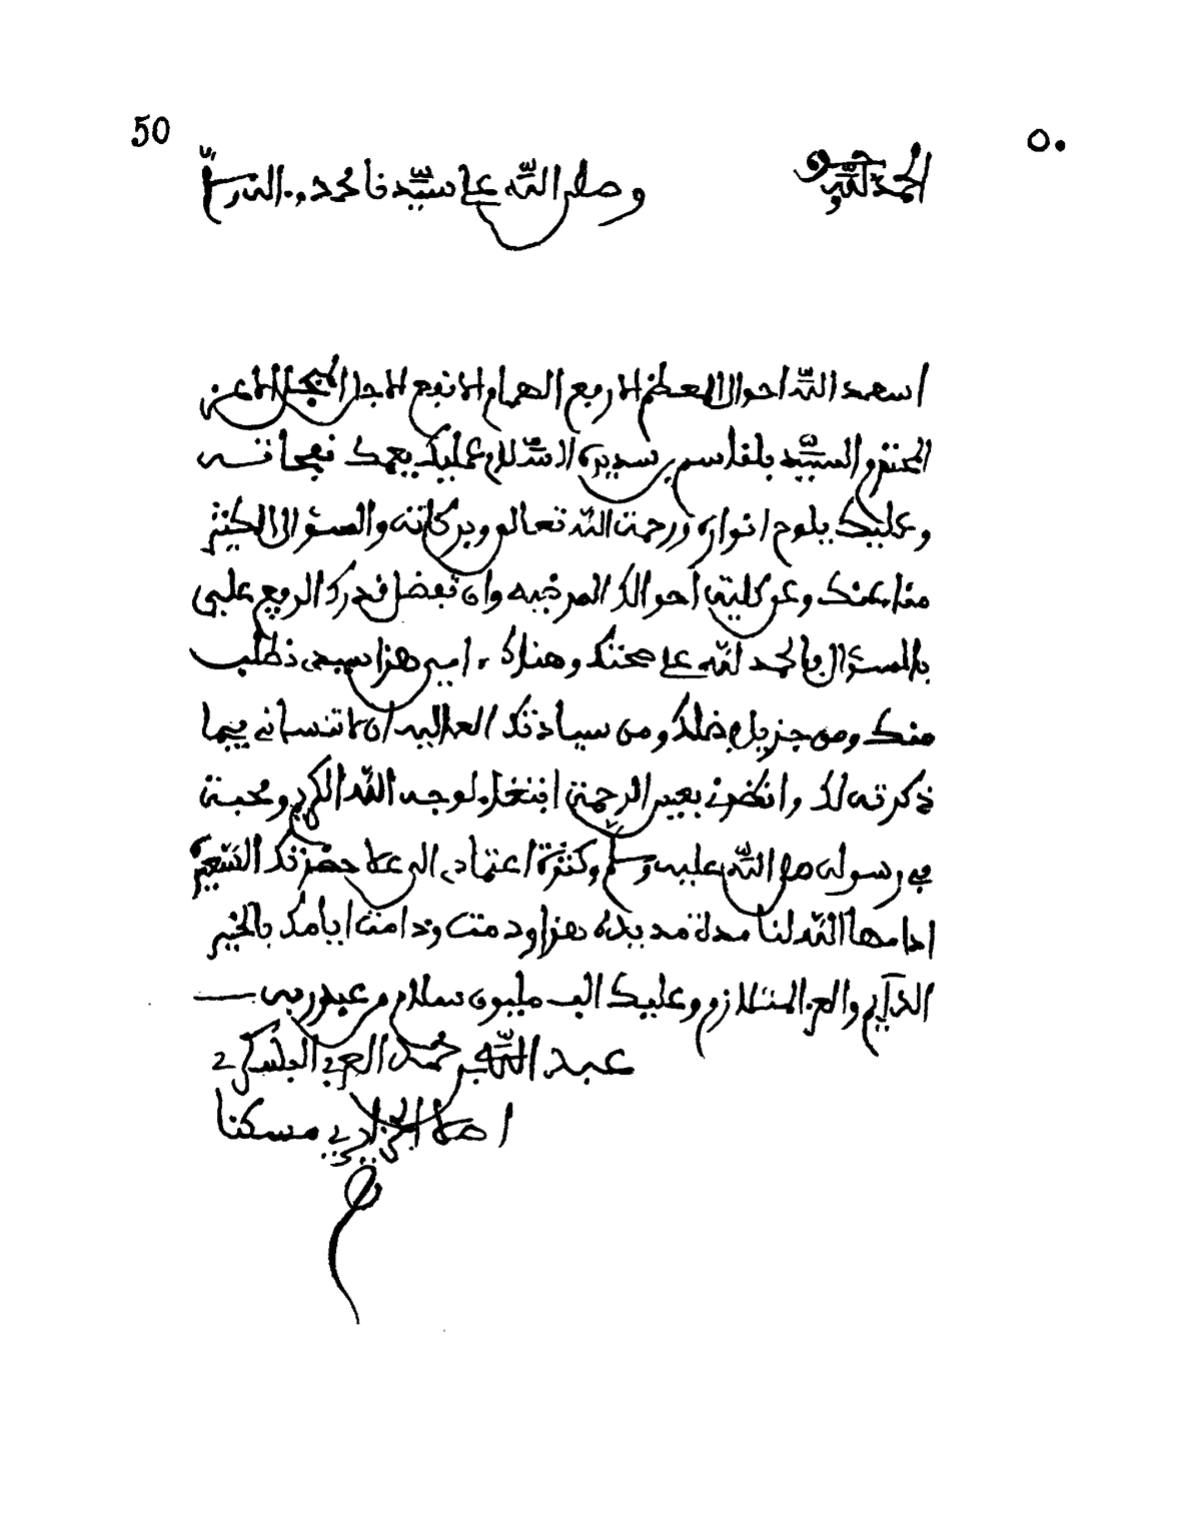 50
٥٠
الحمد لله وحده
وصلى الله على سيدنا محمد وءاله وسلم
اسعد الله احوال المعظم الارفع الهمام الانفع الاجل المبجل الاعز
المحترم السيد بلقاسم بن سديره السلام عليك يعمك نفحاته
وعليك يلوح انواره ورحمت الله تعالى وبركاته والسؤال الكثير
منا عنك وعن كلية احوالك المرضيه وان تفضل قدرك الرفيع علي
بالسؤال فالحمد لله على صحتك وهناك ءامين هذا سيدي نطلب
منك ومن جزيل فضلك ومن سيادتك العاليه ان لا تنساني فيما
ذكرته لك وانظرني بعين الرحمة ابتغاء لوجه الله الكريم ومحبة
في رسوله صلى الله عليه وسلم وكثرة اعتمادي الى علا حضرتك الشعيرة
ادامها الله لنا مدة مديدة هذا ودمت ودامت ايامك بالخير
الدآيم والعز المتلازم وعليك الف مليون سلام من عبد ربه
عبد الله بن محمد العربي
اصلا الجزايري مسكنا